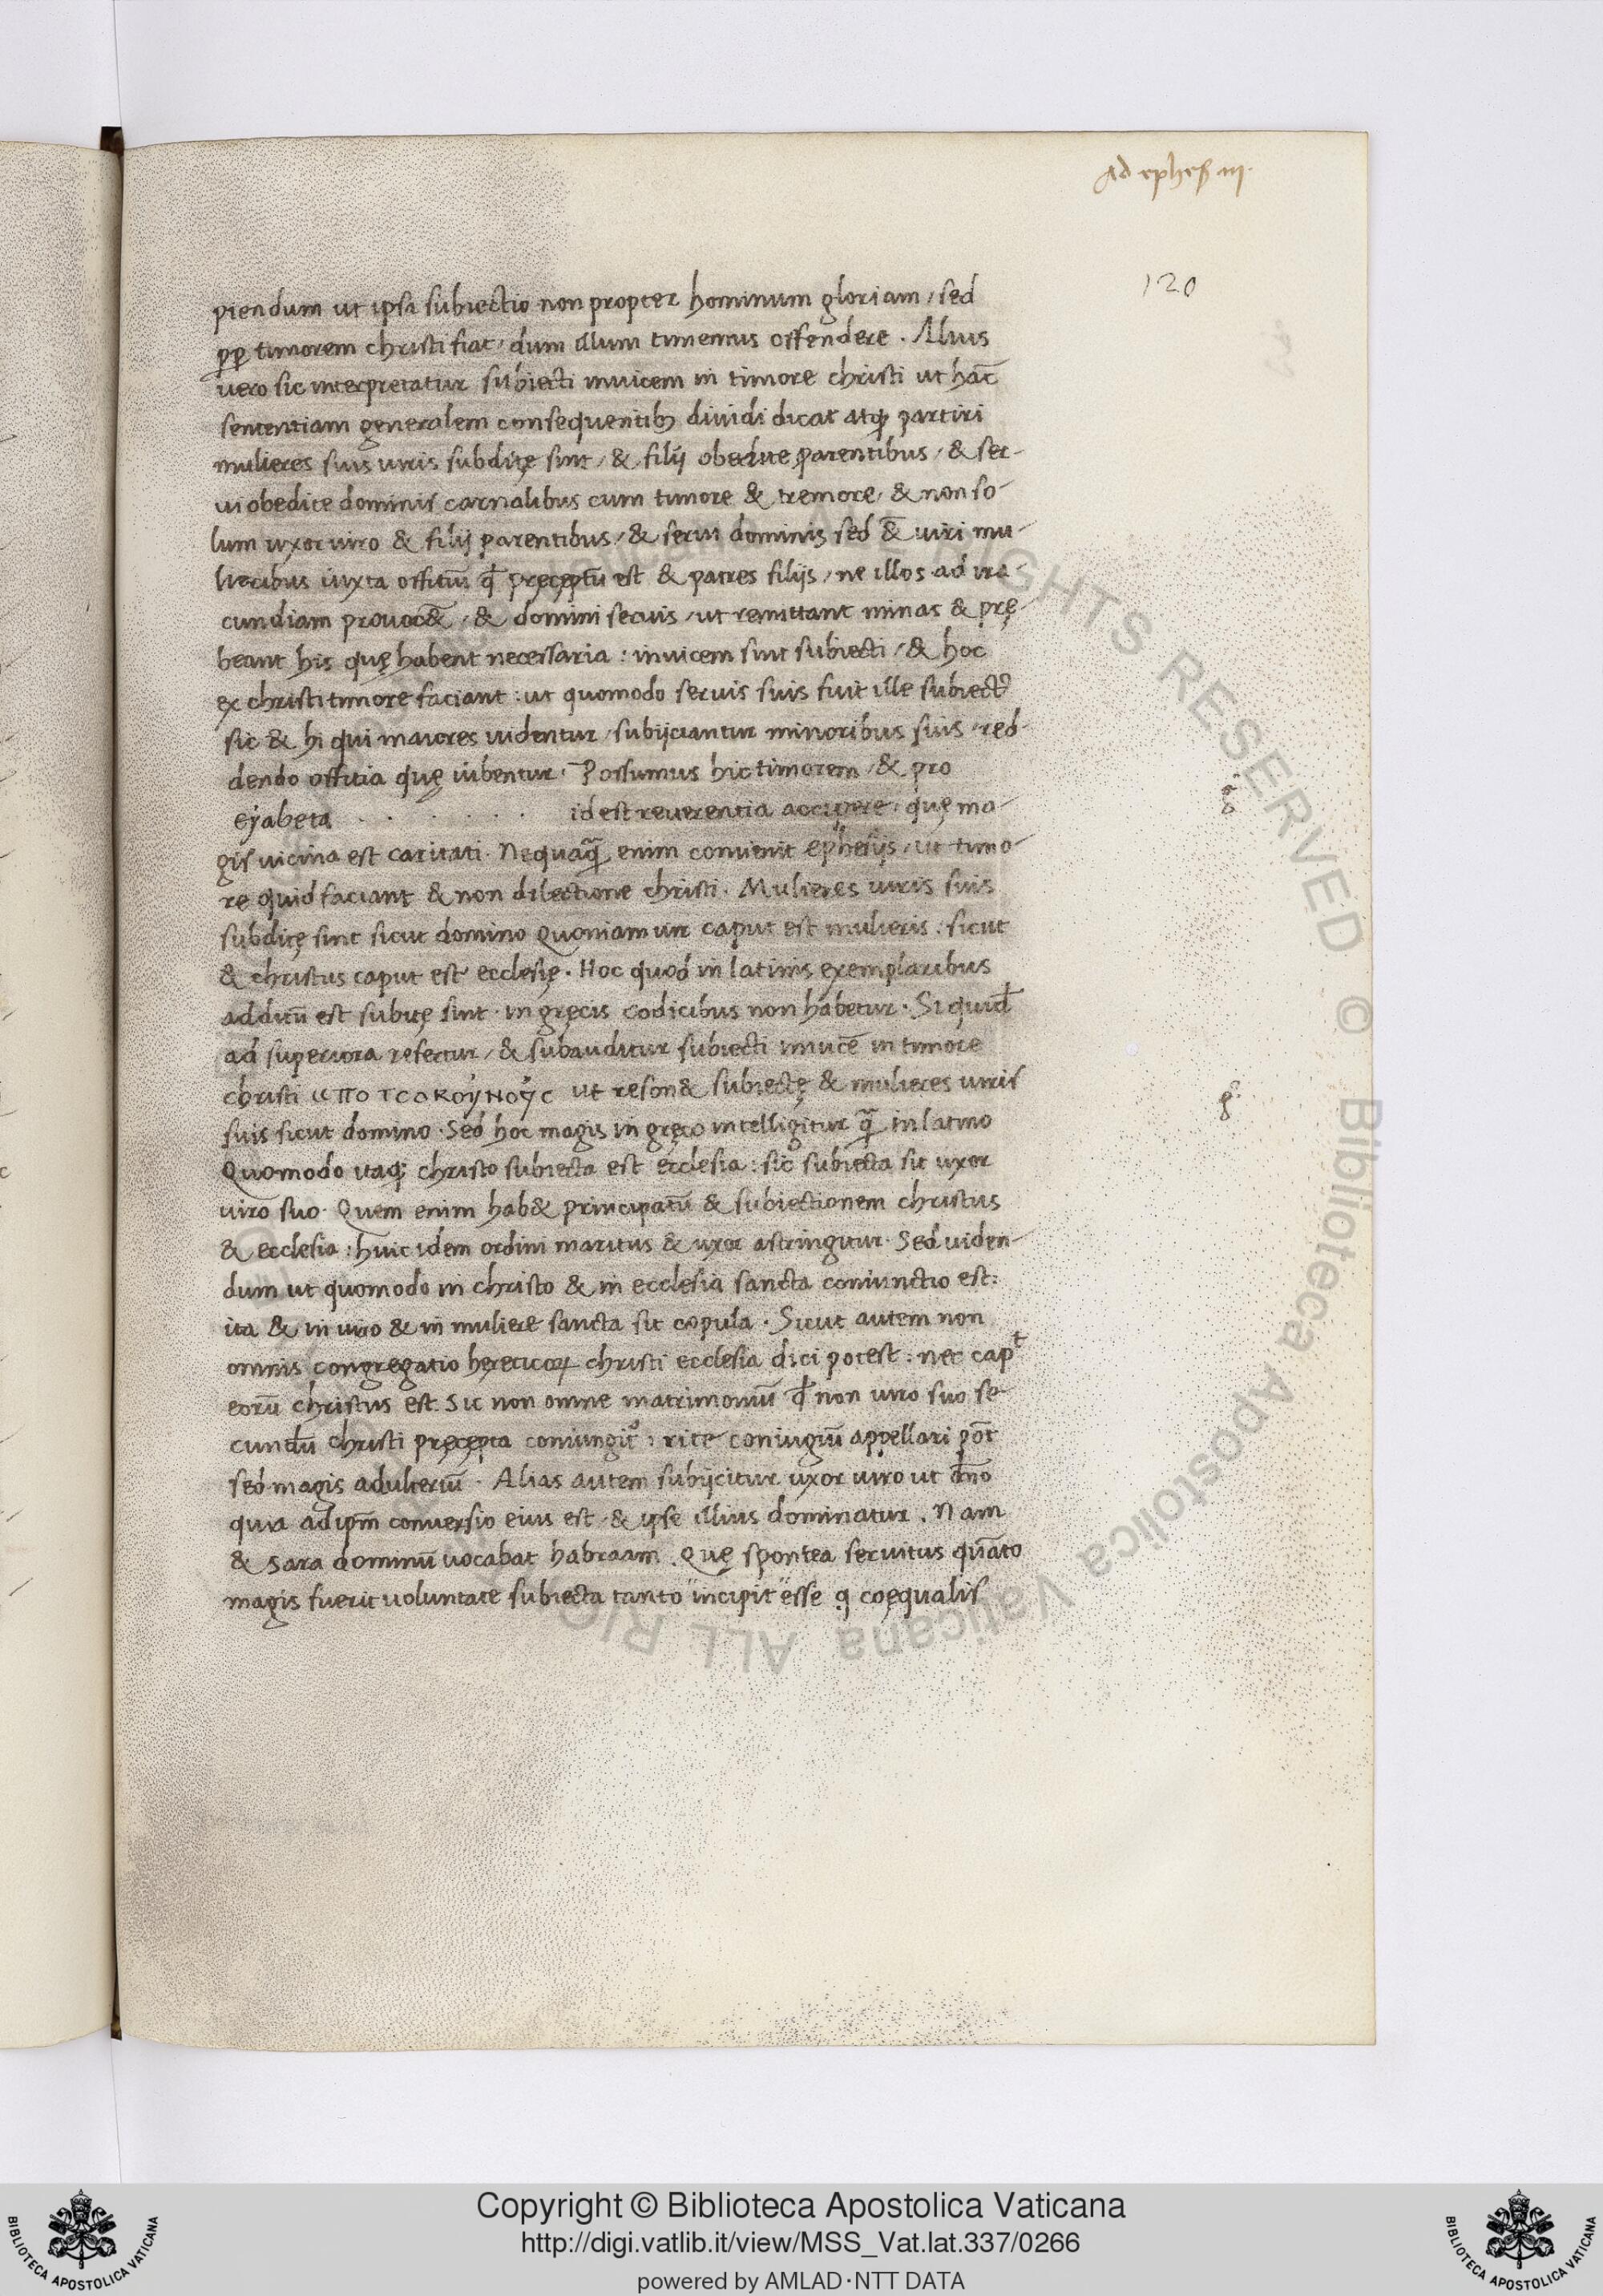 Ad ephes iii.
120
piendum ut ipsa subiectio non propter hominum gloriam / sed
pp timorem christi fiat / dum illum timemus offendere . Alius
uero sic interpretatur subiecti inuicem in timore christi ut hāc
sententiam generalem consequentibꝫ diuidi dicat atqꝫ partiri
mulieres suis uiris subditę sint / & filij obedite parentibus / & ser-
ui obedite dominis carnalibus cum timore & tremore / & non so-
lum uxor uiro & filij parentibus / & serui dominis sed &̄ uiri mu-
lieribus iuxta offitiū qđ pręceptū est & patres filijs / ne illos ad ira-
cundiam prouoc&̄ / & domini seruis / ut remittant minas & prę-
beant his quę habent necessaria : inuicem sint subiecti / & hoc
ex christi timore faciant : ut quomodo seruis suis fuit ille subiectꝰ
sic & hi qui maiores uidentur / subijciantur minoribus suis / red-
dendo offitia quę iubentur . Possumus hic timorem / & pro
eyabeta . . . . . . . id est reuerentia accipere / quę ma-
gis uicina est caritati . Nequaq̄ enim conuenit ephesijs / ut timo-
re quid faciant & non dilectione christi . Mulieres uiris suis
subditę sint sicut domino Quoniam uir caput est mulieris : sicut
& christus caput est ecclesię . Hoc quod in latinis exemplaribus
additū est subitę sint . in gręcis codicibus non habetur . Si quidē
ad superiora refertur / & subauditur subiecti inuicē in timore
christi ut reson& subiectę & mulieres uiris
suis sicut domino . Sed hoc magis in gręco intelligitur q̄ in latino
Quomodo itaqꝫ christo subiecta est ecclesia : sic subiecta sit uxor
uiro suo . Quem enim hab& principatū & subiectionem christus
& ecclesia : huic idem ordini maritus & uxor astringitur . Sed uiden-
dum ut quomodo in christo & in ecclesia sancta coniunctio est :
ita & in uiro & in muliere sancta sit copula . Sicut autem non
omnis congregatio hereticoꝝ christi ecclesia dici potest : nec capᵗ
eorū christus est . sic non omne matrimoniū qđ non uiro suo se-
cundū christi pręcepta coniungitᵘ : rite coniugiū appellari pōt
sed magis adulteriū . Alias autem subijcitur uxor uiro ut dn̄o
quia ad ipm̄ conuersio eius est / & ipse illius dominatur . Nam
& sara dominū uocabat habraam . Quę spontea seruitus qn̄ato
magis fuerit uoluntate subiecta tanto "incipit" esse q coęqualis
Copyright © Biblioteca Apostolica Vaticana
http://digi.vatlib.it/view/MSS_Vat.lat.337/0266
powered by AMLAD·NTT DATA
BIBLIOTECA APOSTOLICA VATICANA
BIBLIOTECA APOSTOLICA VATICANA